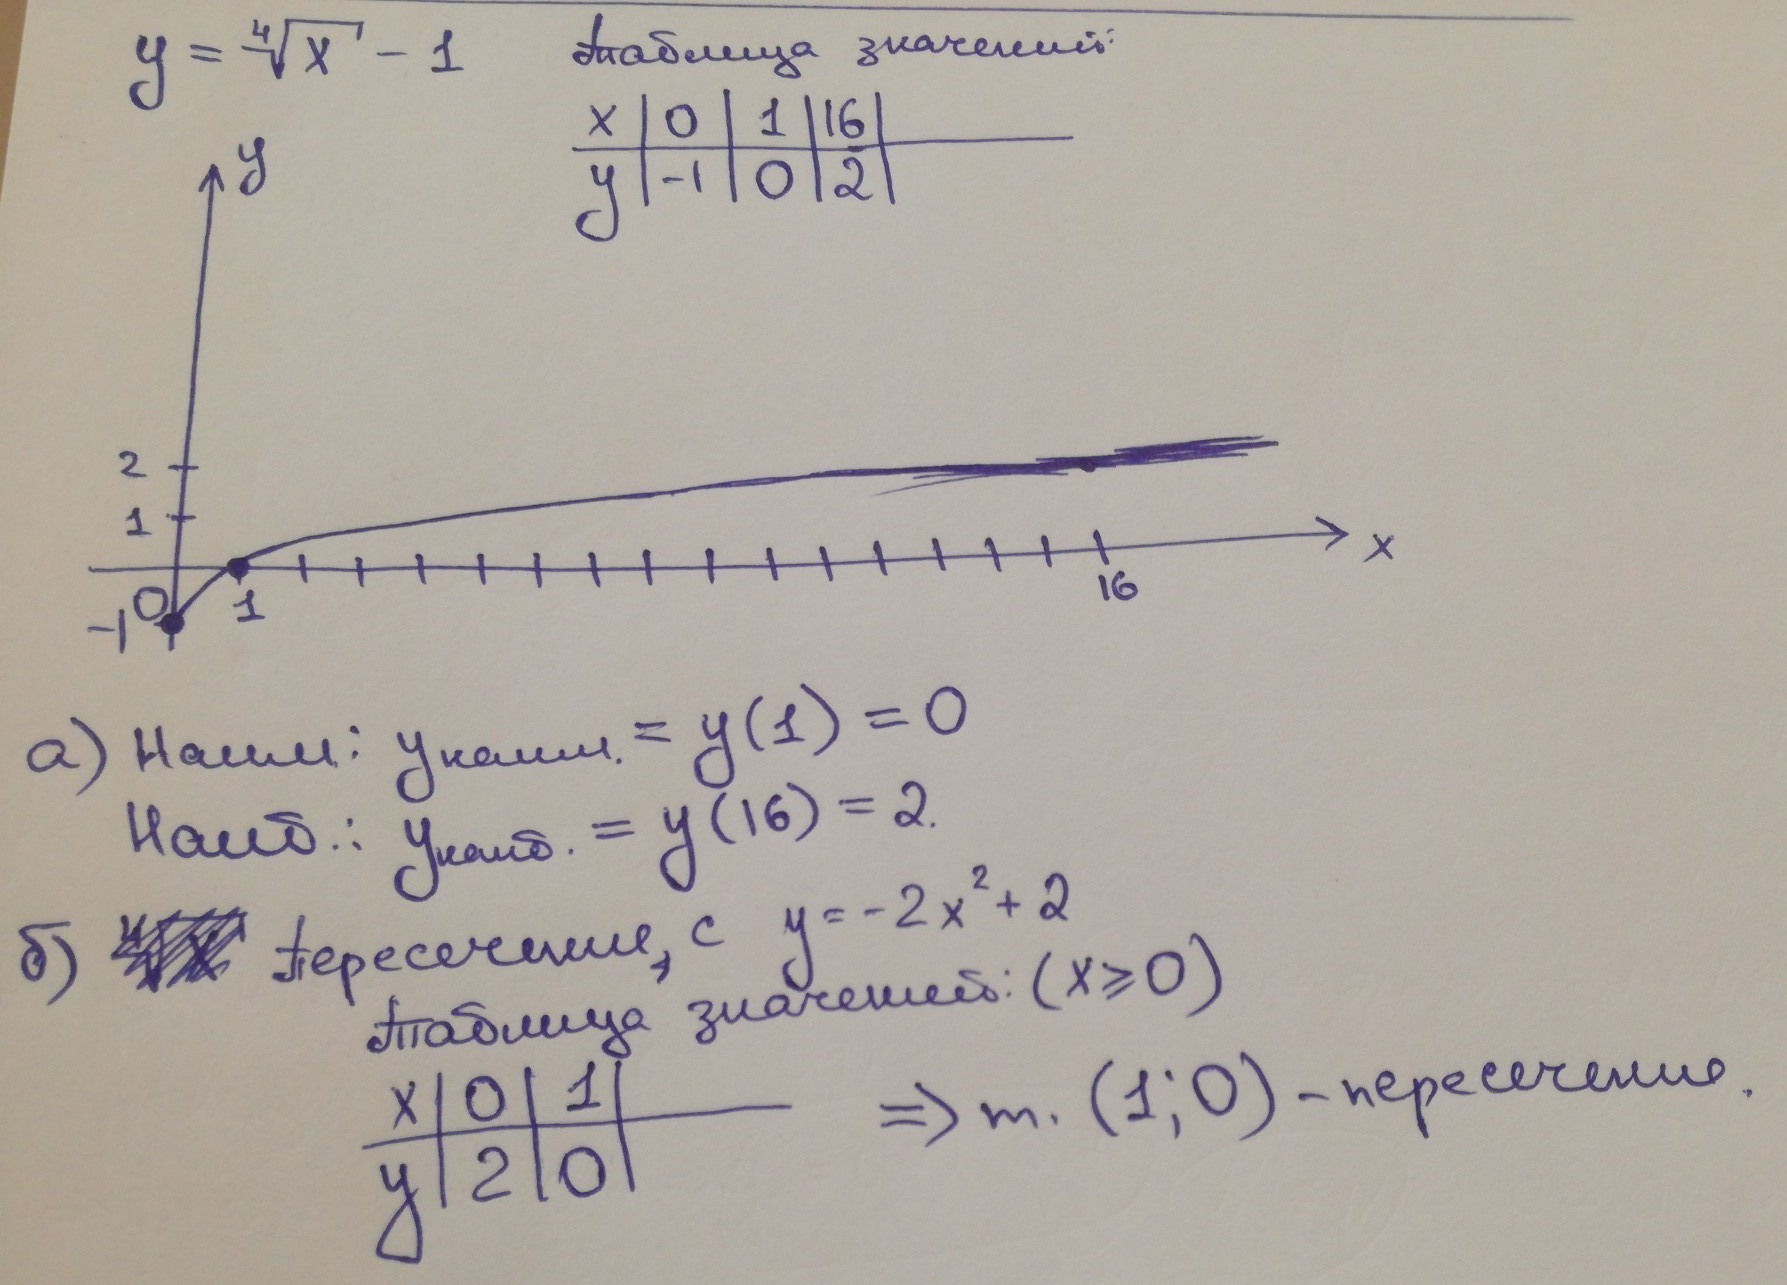 y = ⁴√x - 1 Таблица значений:
x | 0 | 1 | 16 |
y | -1 | 0 | 2 |
y
2
1
0
-1
1
16
x
а) Наим: yнаим. = y(1) = 0
Наиб.: yнаиб. = y(16) = 2.
б) Пересечение, с y = -2x² + 2
Таблица значений: (x ≥ 0)
x | 0 | 1 |
y | 2 | 0 |
=> т. (1; 0) - пересечение.